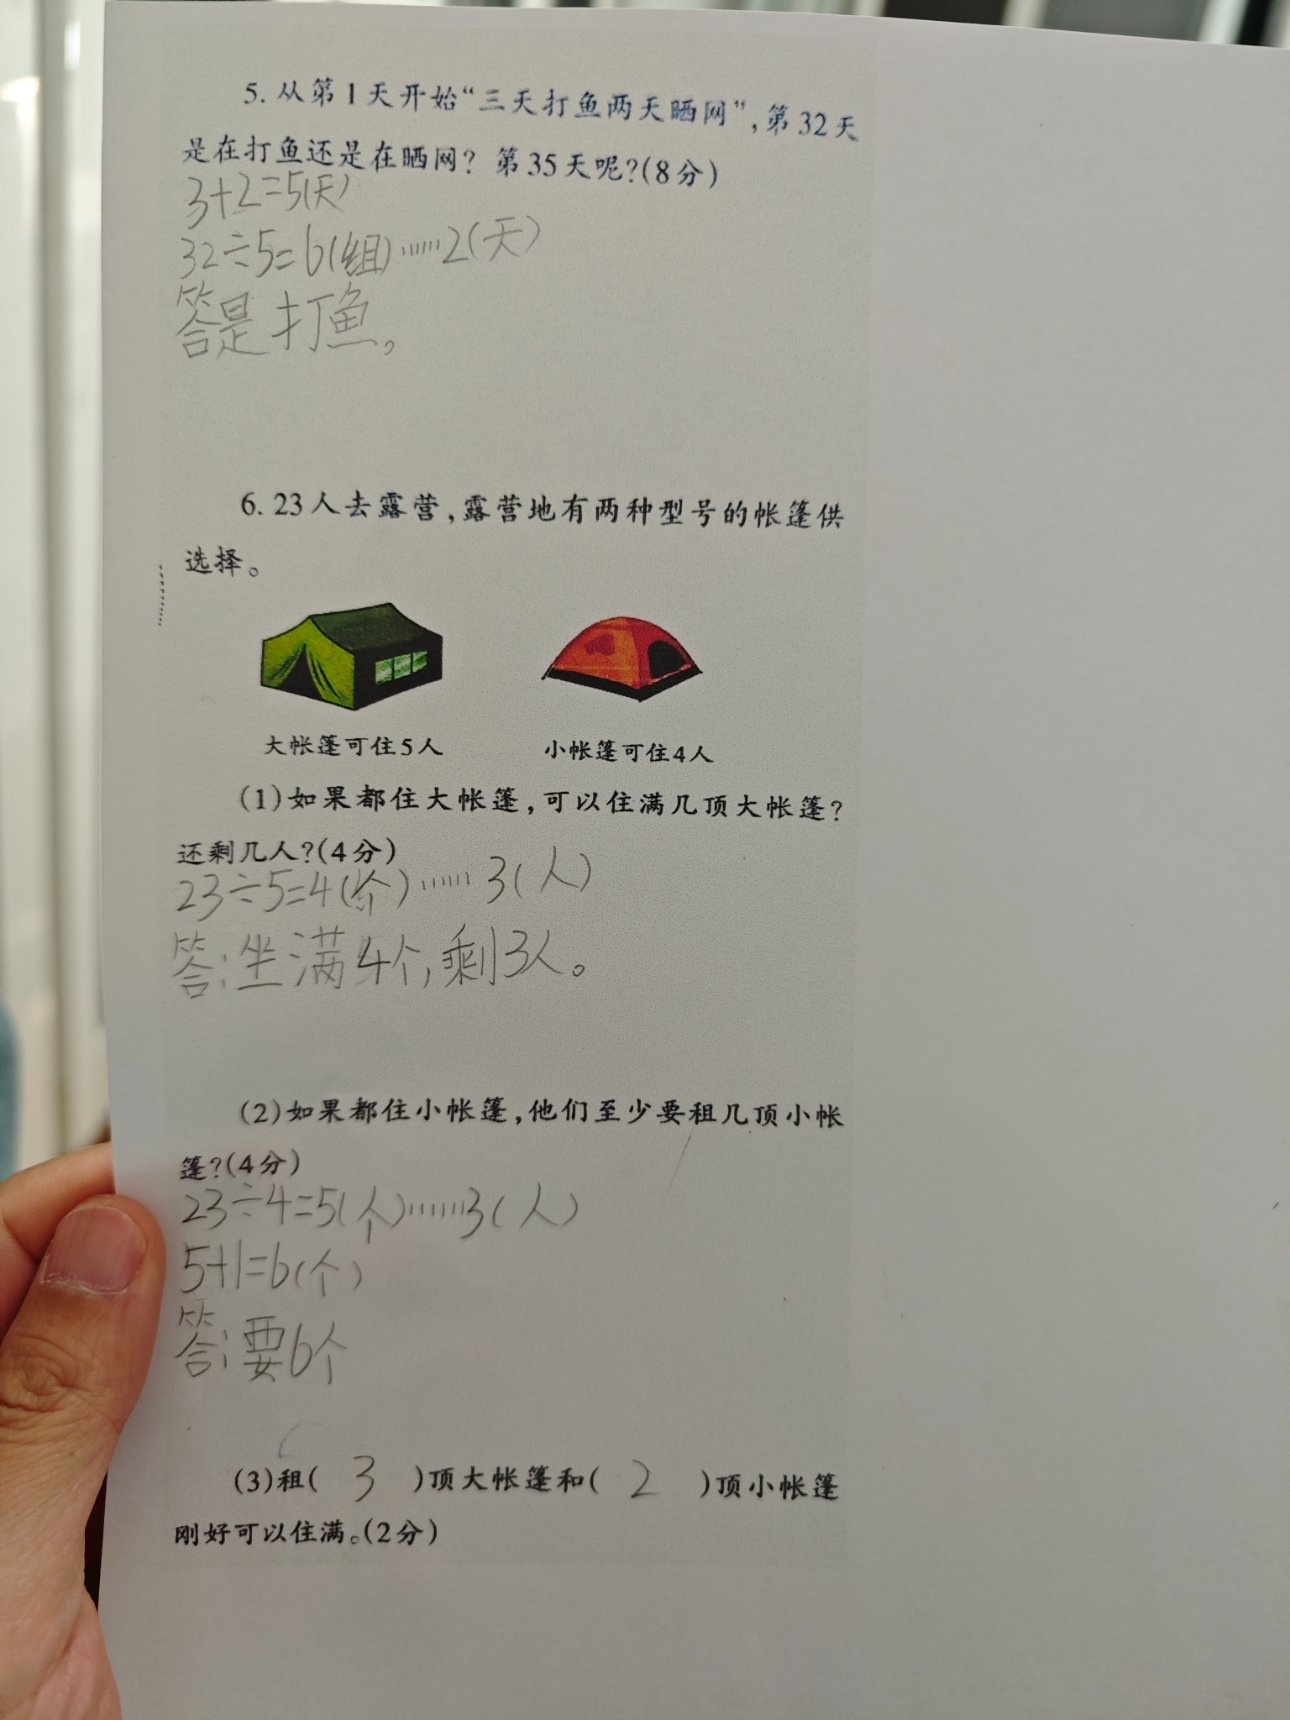 5. 从第1天开始“三天打鱼两天晒网”,第32天
是在打鱼还是在晒网? 第35天呢?(8分)
3+2=5(天)
32÷5=6(组)……2(天)
答是打鱼。
6. 23人去露营,露营地有两种型号的帐篷供
选择。
大帐篷可住5人
小帐篷可住4人
(1)如果都住大帐篷,可以住满几顶大帐篷?
还剩几人?(4分)
23÷5=4(个)……3(人)
答:坐满4个,剩3人。
(2)如果都住小帐篷,他们至少要租几顶小帐
篷?(4分)
23÷4=5(个)……3(人)
5+1=6(个)
答:要6个
(3)租( 3 )顶大帐篷和( 2 )顶小帐篷
刚好可以住满。(2分)